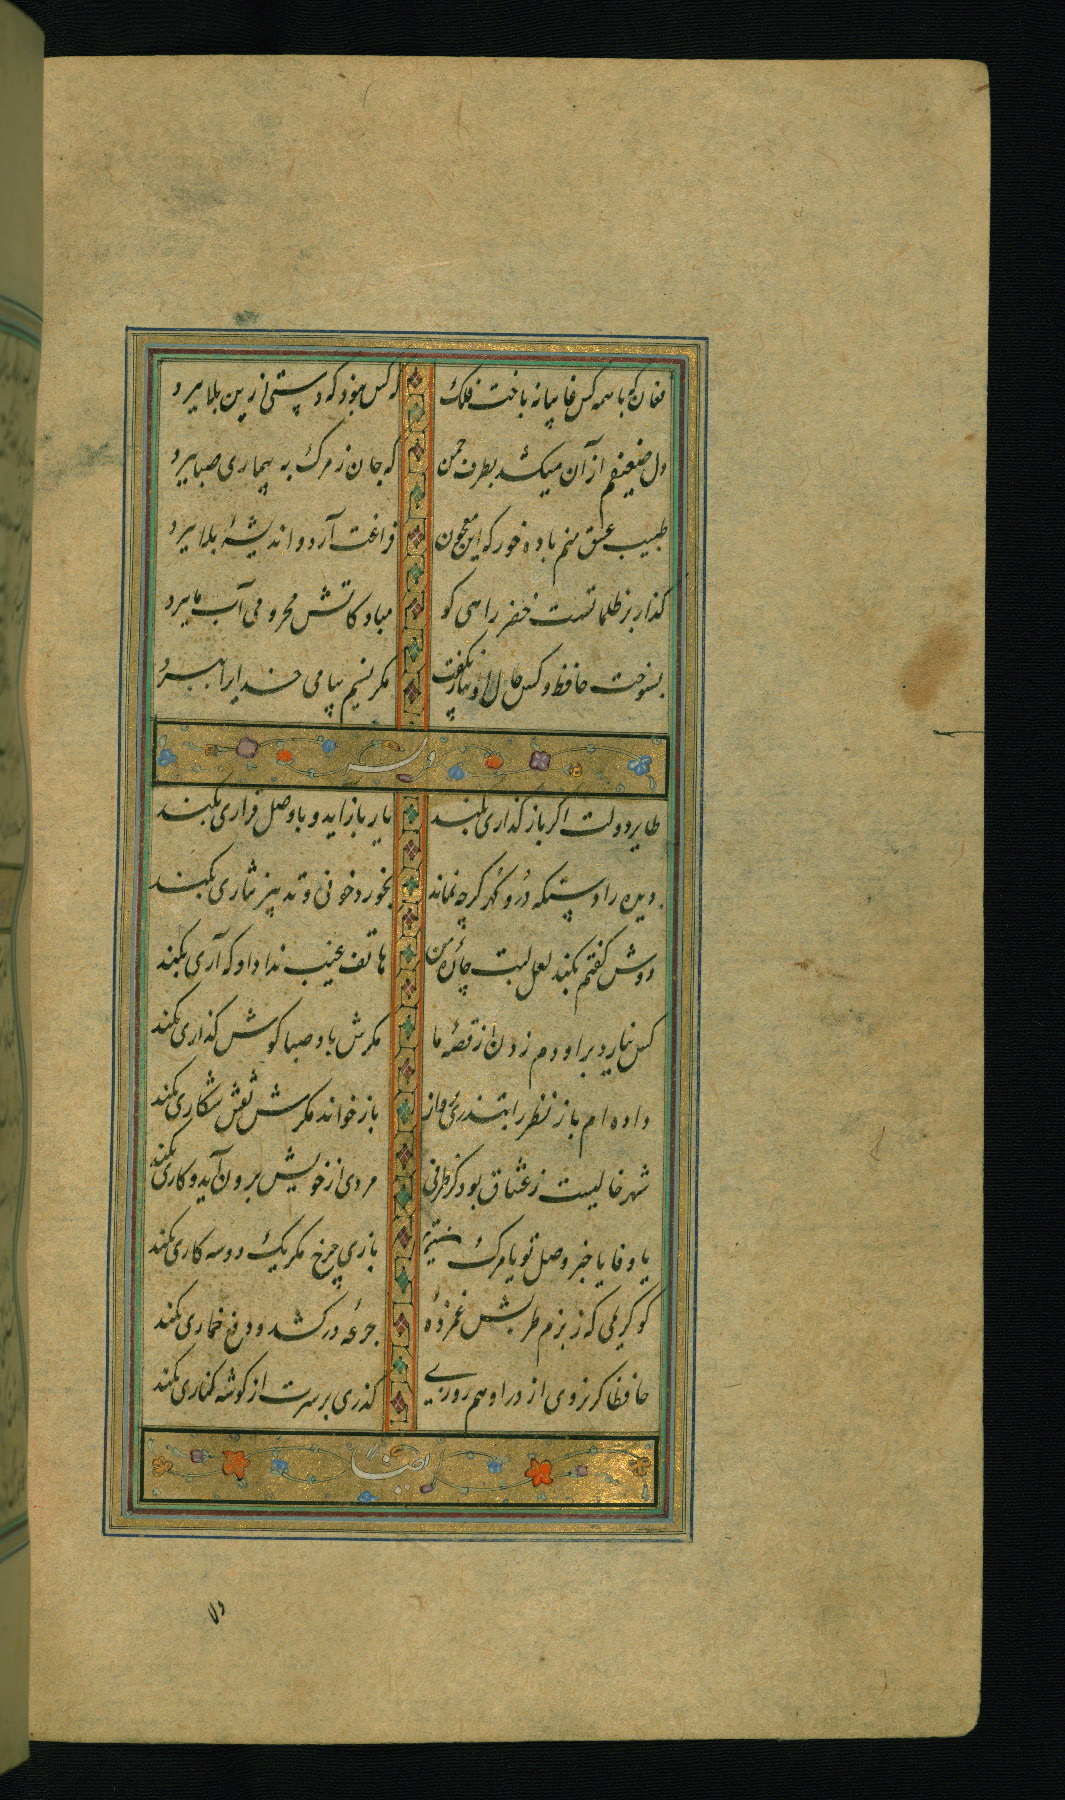 فغان که با همه کس غایبانه باخت فلک که کس نبود که دستی ازین بلا ببرد
دل ضعیفم از آن میکشد بطرف چمن که جان ز مرک به بیماری صبا ببرد
طبیب عشق منم باده خور که این معجون فراغت آرد و اندیشهٔ بلا ببرد
کذار بر ظلماتست خضر راهی کو مباد کاتش محرومی آب ما ببرد
بسوخت حافظ و کس حال او بیار نکفت مکر نسیم پیامی خدایرا ببرد
وله
طایر دولت اکر باز کذاری بکند یار باز اید و با وصل قراری بکند
دیده را دستکه در و کهر کرچه نماند بخورد خونی و تدبیر نثاری بکند
دوش کفتم بکند لعل لبت چارهٔ من هاتف غیب ندا داد که آری بکند
کس نیارد بر او دم زدن از قصهٔ ما مکرش باد صبا کوش کذاری بکند
داده ام باز نظر را بتذروی پرواز باز خواند مکرش نقش شکاری بکند
شهر خالیست ز عشاق بود کز طرفی مردی از خویش برون آید و کاری بکند
یا وفا یا خبر وصل تو یا مرک رقیب بازی چرخ مکر یک دو سه کاری بکند
کو کریمی که ز بزم طربش غمزدهٔ جرعهٔ درکشد و دفع خماری بکند
حافظا کر نروی از در او هم روزی کذری بر سرت از کوشه کناری بکند
ایضا